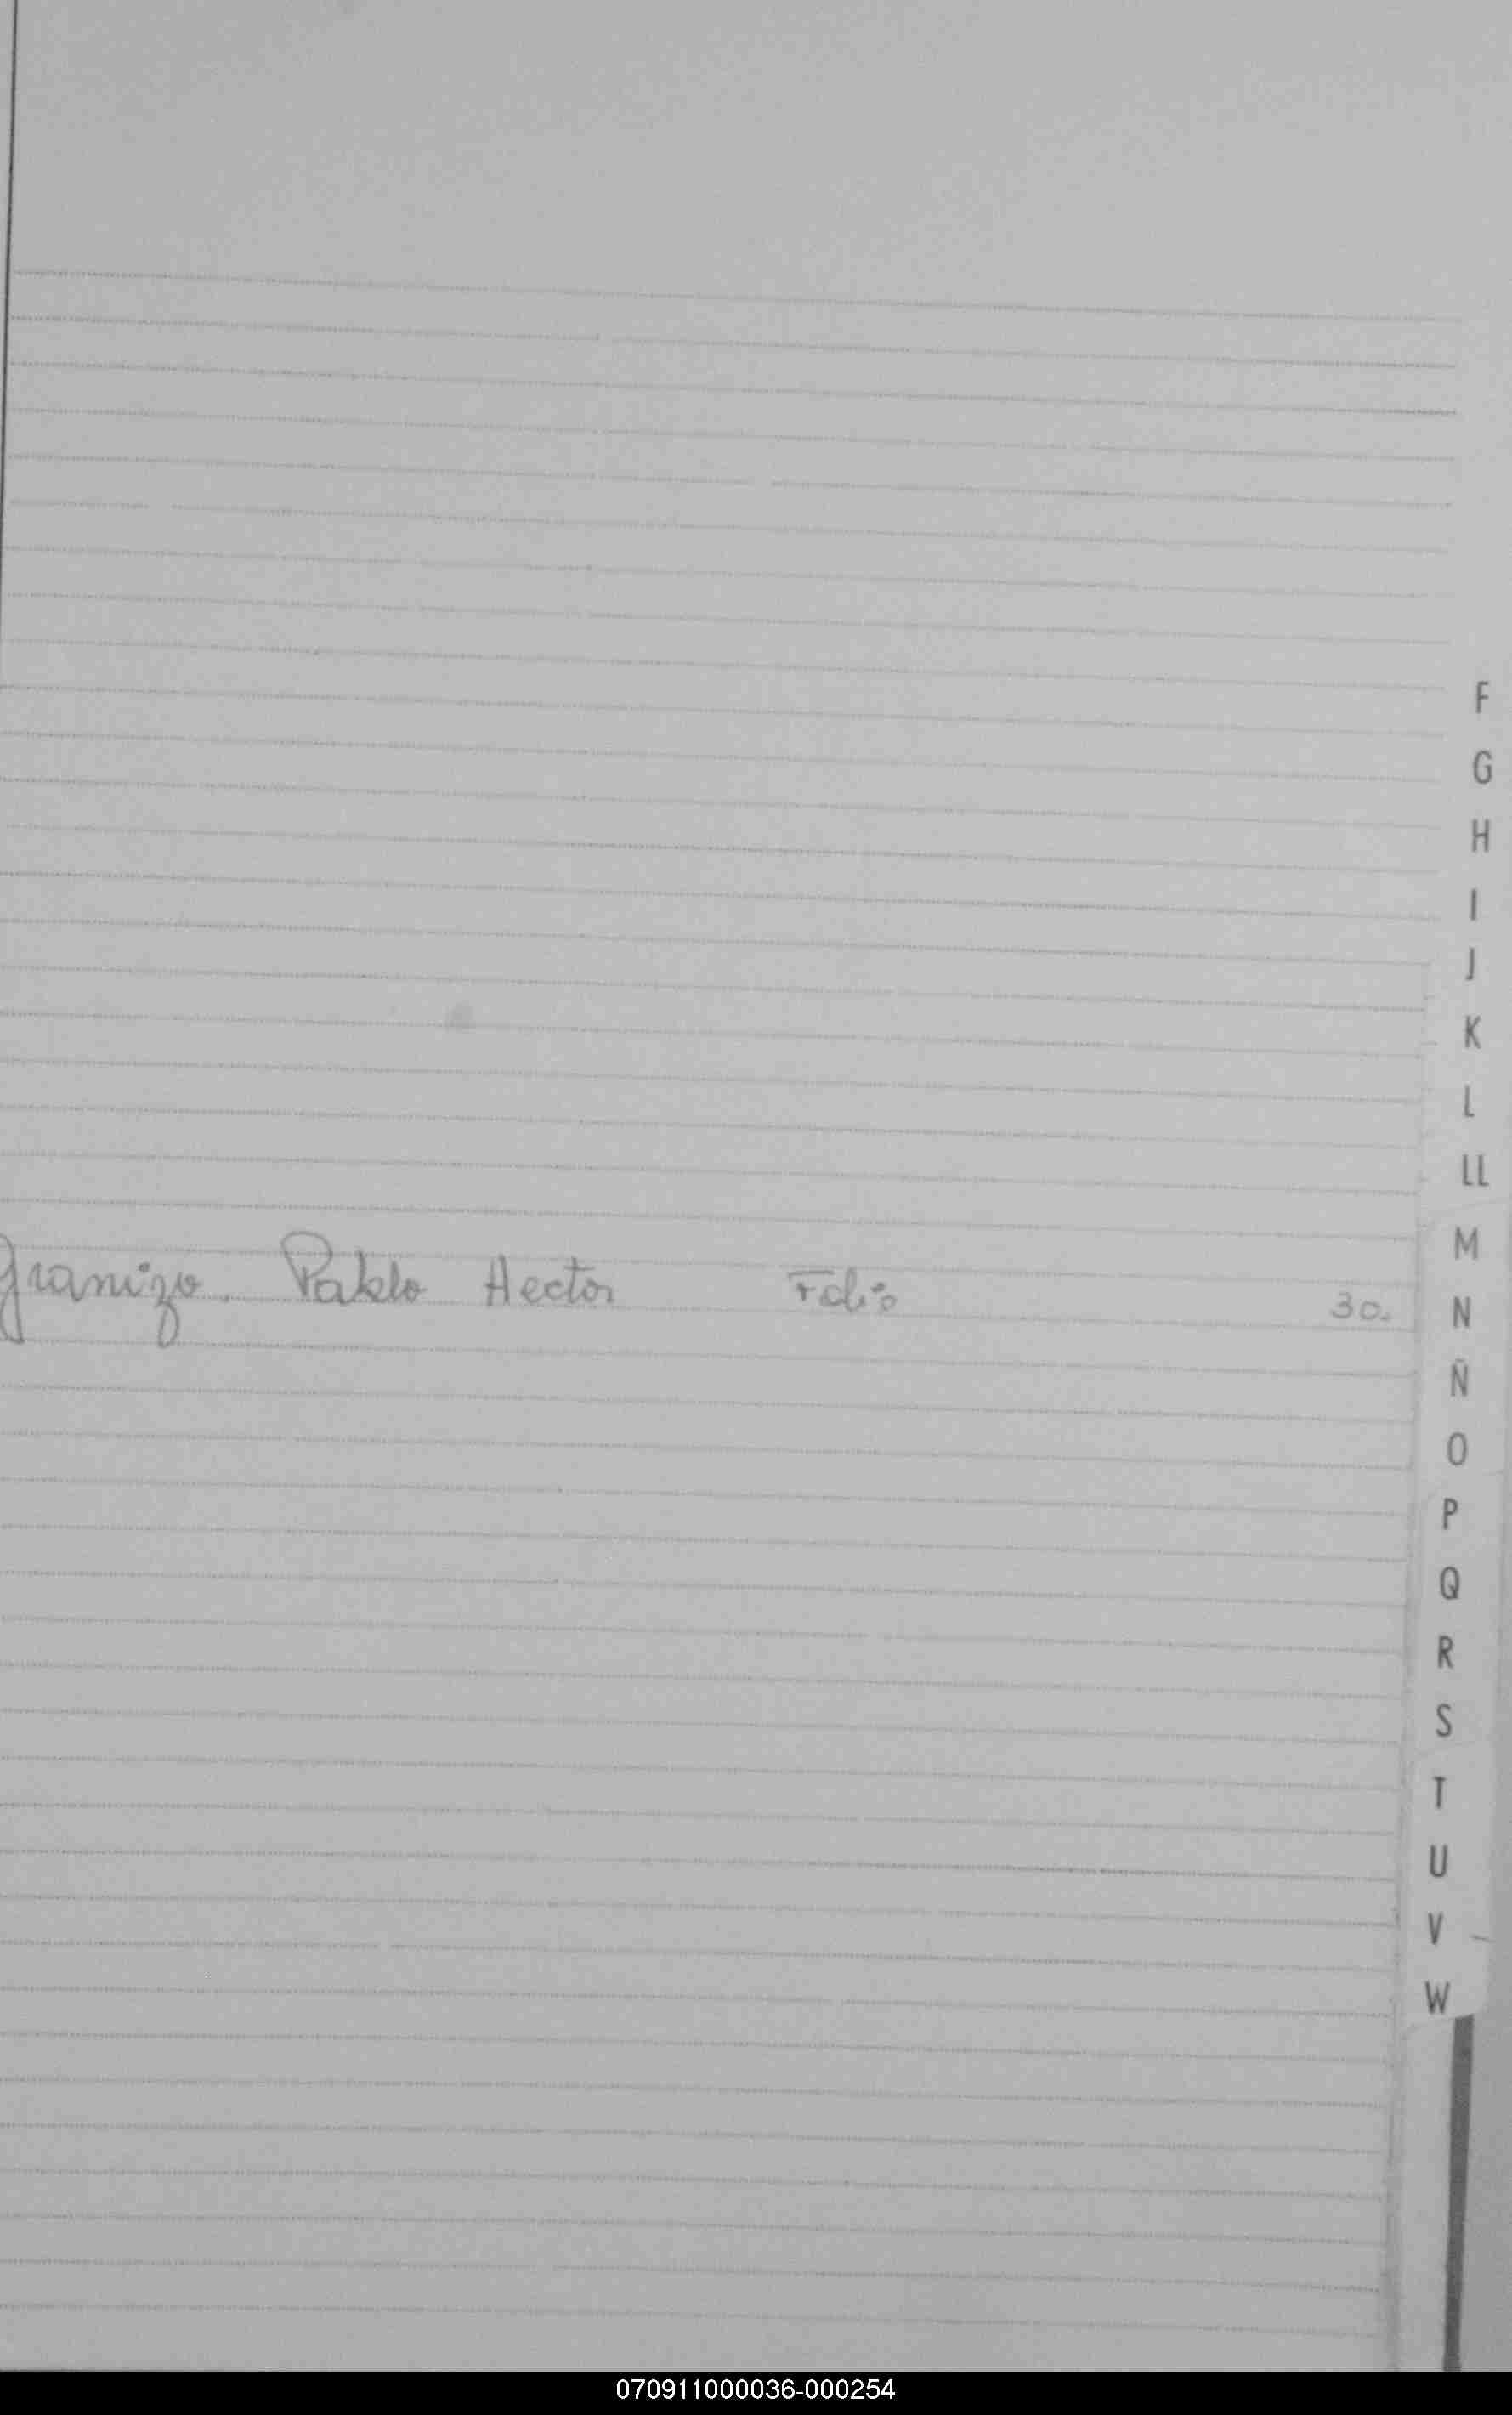 F
G
H
I
J
K
L
LL
M
Granizo. Pablo Hector Folio 30.
N
Ñ
O
P
Q
R
S
T
U
V
W
070911000036-000254